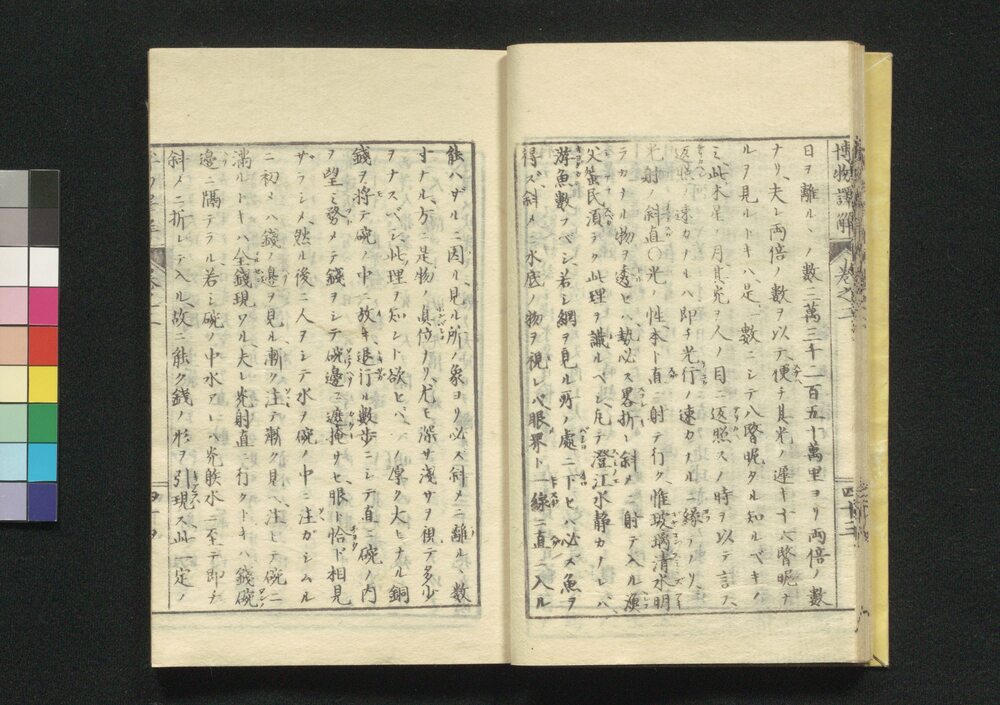 博物譯解 巻之二
日ヲ離ルヽノ數二萬三千一百五十萬里ヨリ両倍ノ數
ナリ、夫レ両倍ノ數ヲ以テ便チ其光ノ遲キ十六瞖呢ナ
ルヲ見ルトキハ、是一數ニシテ八瞖呢タル知ルベキノ
ミ、此木星ノ月其光ヲ人ノ目ニ返照スノ時ヲ以テ言フ、
返照ノ速カナルハ即チ光行ノ速カナルニ縁ルナリ、
光射ノ斜直〇光ノ性本ト直ニ射テ行ク、惟玻璃清水明
ラカナル物ヲ透セバ勢必ス畧折レ斜メニ射テ入ル、漁
父蜑民須ラク此理ヲ識ルベシ凡テ澄江水靜カナレバ、
游魚數フベシ若シ網ヲ見ル所ノ處ニ下セハ必ズ魚ヲ
得ズ、斜メニ水底ノ物ヲ視レバ眼界ト一線ニ直ニ入ル
四十三
能ハザルニ因ル、見ル所ノ象ヨリ必ス斜メニ離ルヽ數
寸ナル、方ニ是物ノ真位ナリ、尤モ深サ浅サヲ視テ多少
ヲナスベシ、此理ヲ知ント欲セバ、一ノ厚ク大ヒナル銅
錢ヲ将テ碗ノ中ニ放キ、退行ル數歩ニシテ直ニ碗ノ内
ヲ望ミ務メテ錢ヲシテ碗邊ニ遮掩サセ眼ト恰ド相見
ザラシメ、然ル後ニ人ヲシテ水ヲ碗ノ中ニ注ガシムル
ニ初メハ錢ノ邊ヲ見ル、漸ク注テ漸ク見ヘ、注ヒテ碗ニ
満ルトキハ全錢現ワル、夫レ光射直ニ行クトキハ錢碗
邊ニ隔テラル若シ碗ノ中水アレバ光線水ニ至テ即チ
斜メニ折レテ入ル、故ニ能ク錢ノ形ヲ引現ス、此一定ノ
四十四